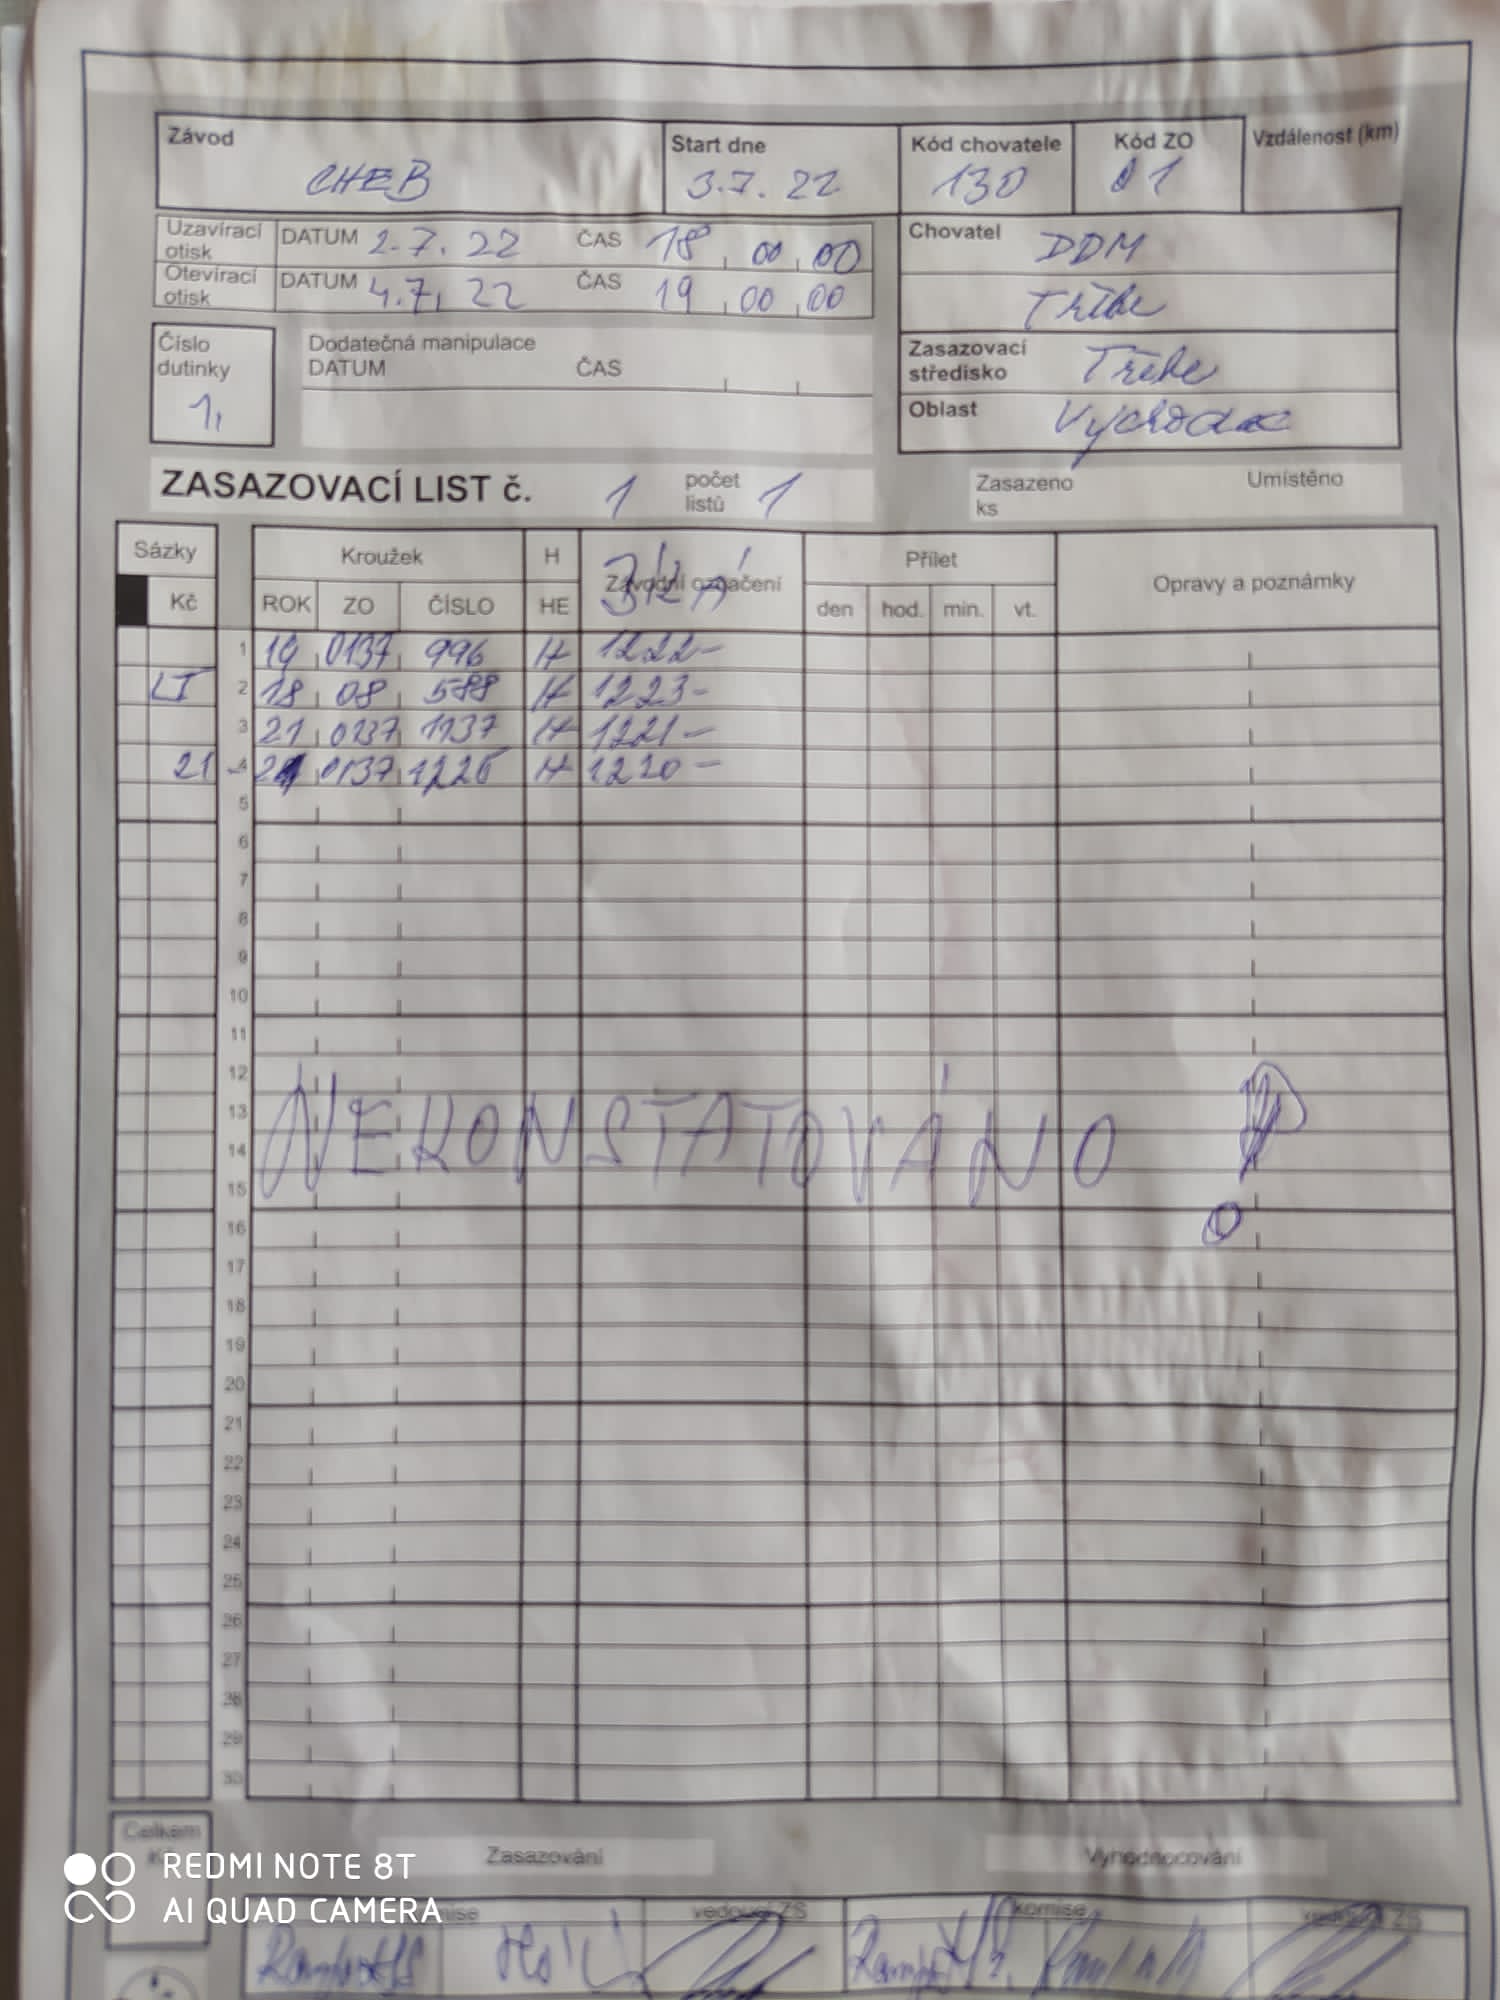 Závod Start dne Kód chovatele Kód ZO Vzdálenost (km)
CHEB 3.7.22 130 01
Uzavírací otisk DATUM 2.7.22 ČAS 18 00 00
Otevírací otisk DATUM 4.7.22 ČAS 19 00 00
Chovatel DDM
Třebe
Číslo dutinky 1,
Dodatečná manipulace
DATUM ČAS
Zasazovací středisko Třebe
Oblast
ZASAZOVACÍ LIST č. 1 počet listů 1 Zasazeno ks Umístěno
Sázky Kroužek H Závodní označení Přílet Opravy a poznámky
Kč ROK ZO ČÍSLO HE den hod. min. vt.
1 19 0137 996 H 1222-
LI 2 18 08 588 H 1223-
3 21 0137 1137 H 1221-
21 4 21 0137 1226 H 1220-
5
6
7
8
9
10
11
12
13
14
15
NEKONSTATOVÁNO
16
17
18
19
20
21
22
23
24
25
26
27
28
29
30
Celkem Kč Zasazování Vyhodnocování
komise vedoucí ZS komise vedoucí ZS
REDMI NOTE 8T
AI QUAD CAMERA